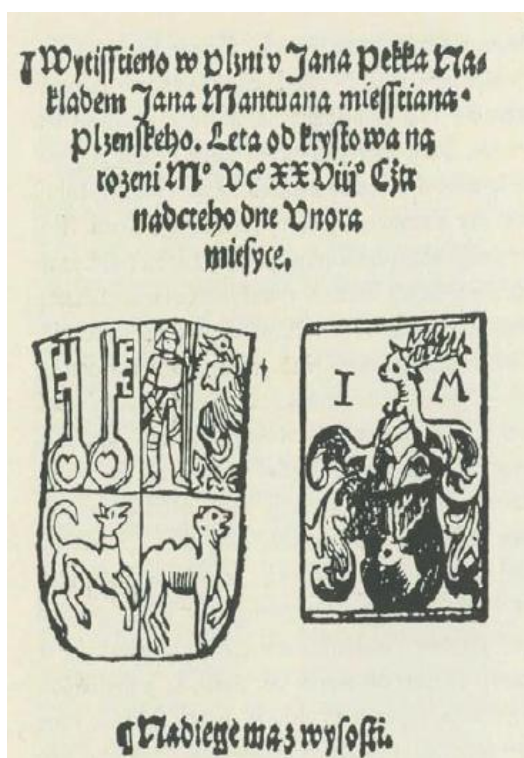 ¶ Wytisstieno w Plzni v Jana Pekka Na⸗
kladem Jana Mantuana miesstiana
Plzenskeho. Leta od krystowa na
rozeni M° Vc° XXViij° Cżtr
nadcteho dne Vnora
miesyce.
I M
¶ Nadiege ma z wysosti.